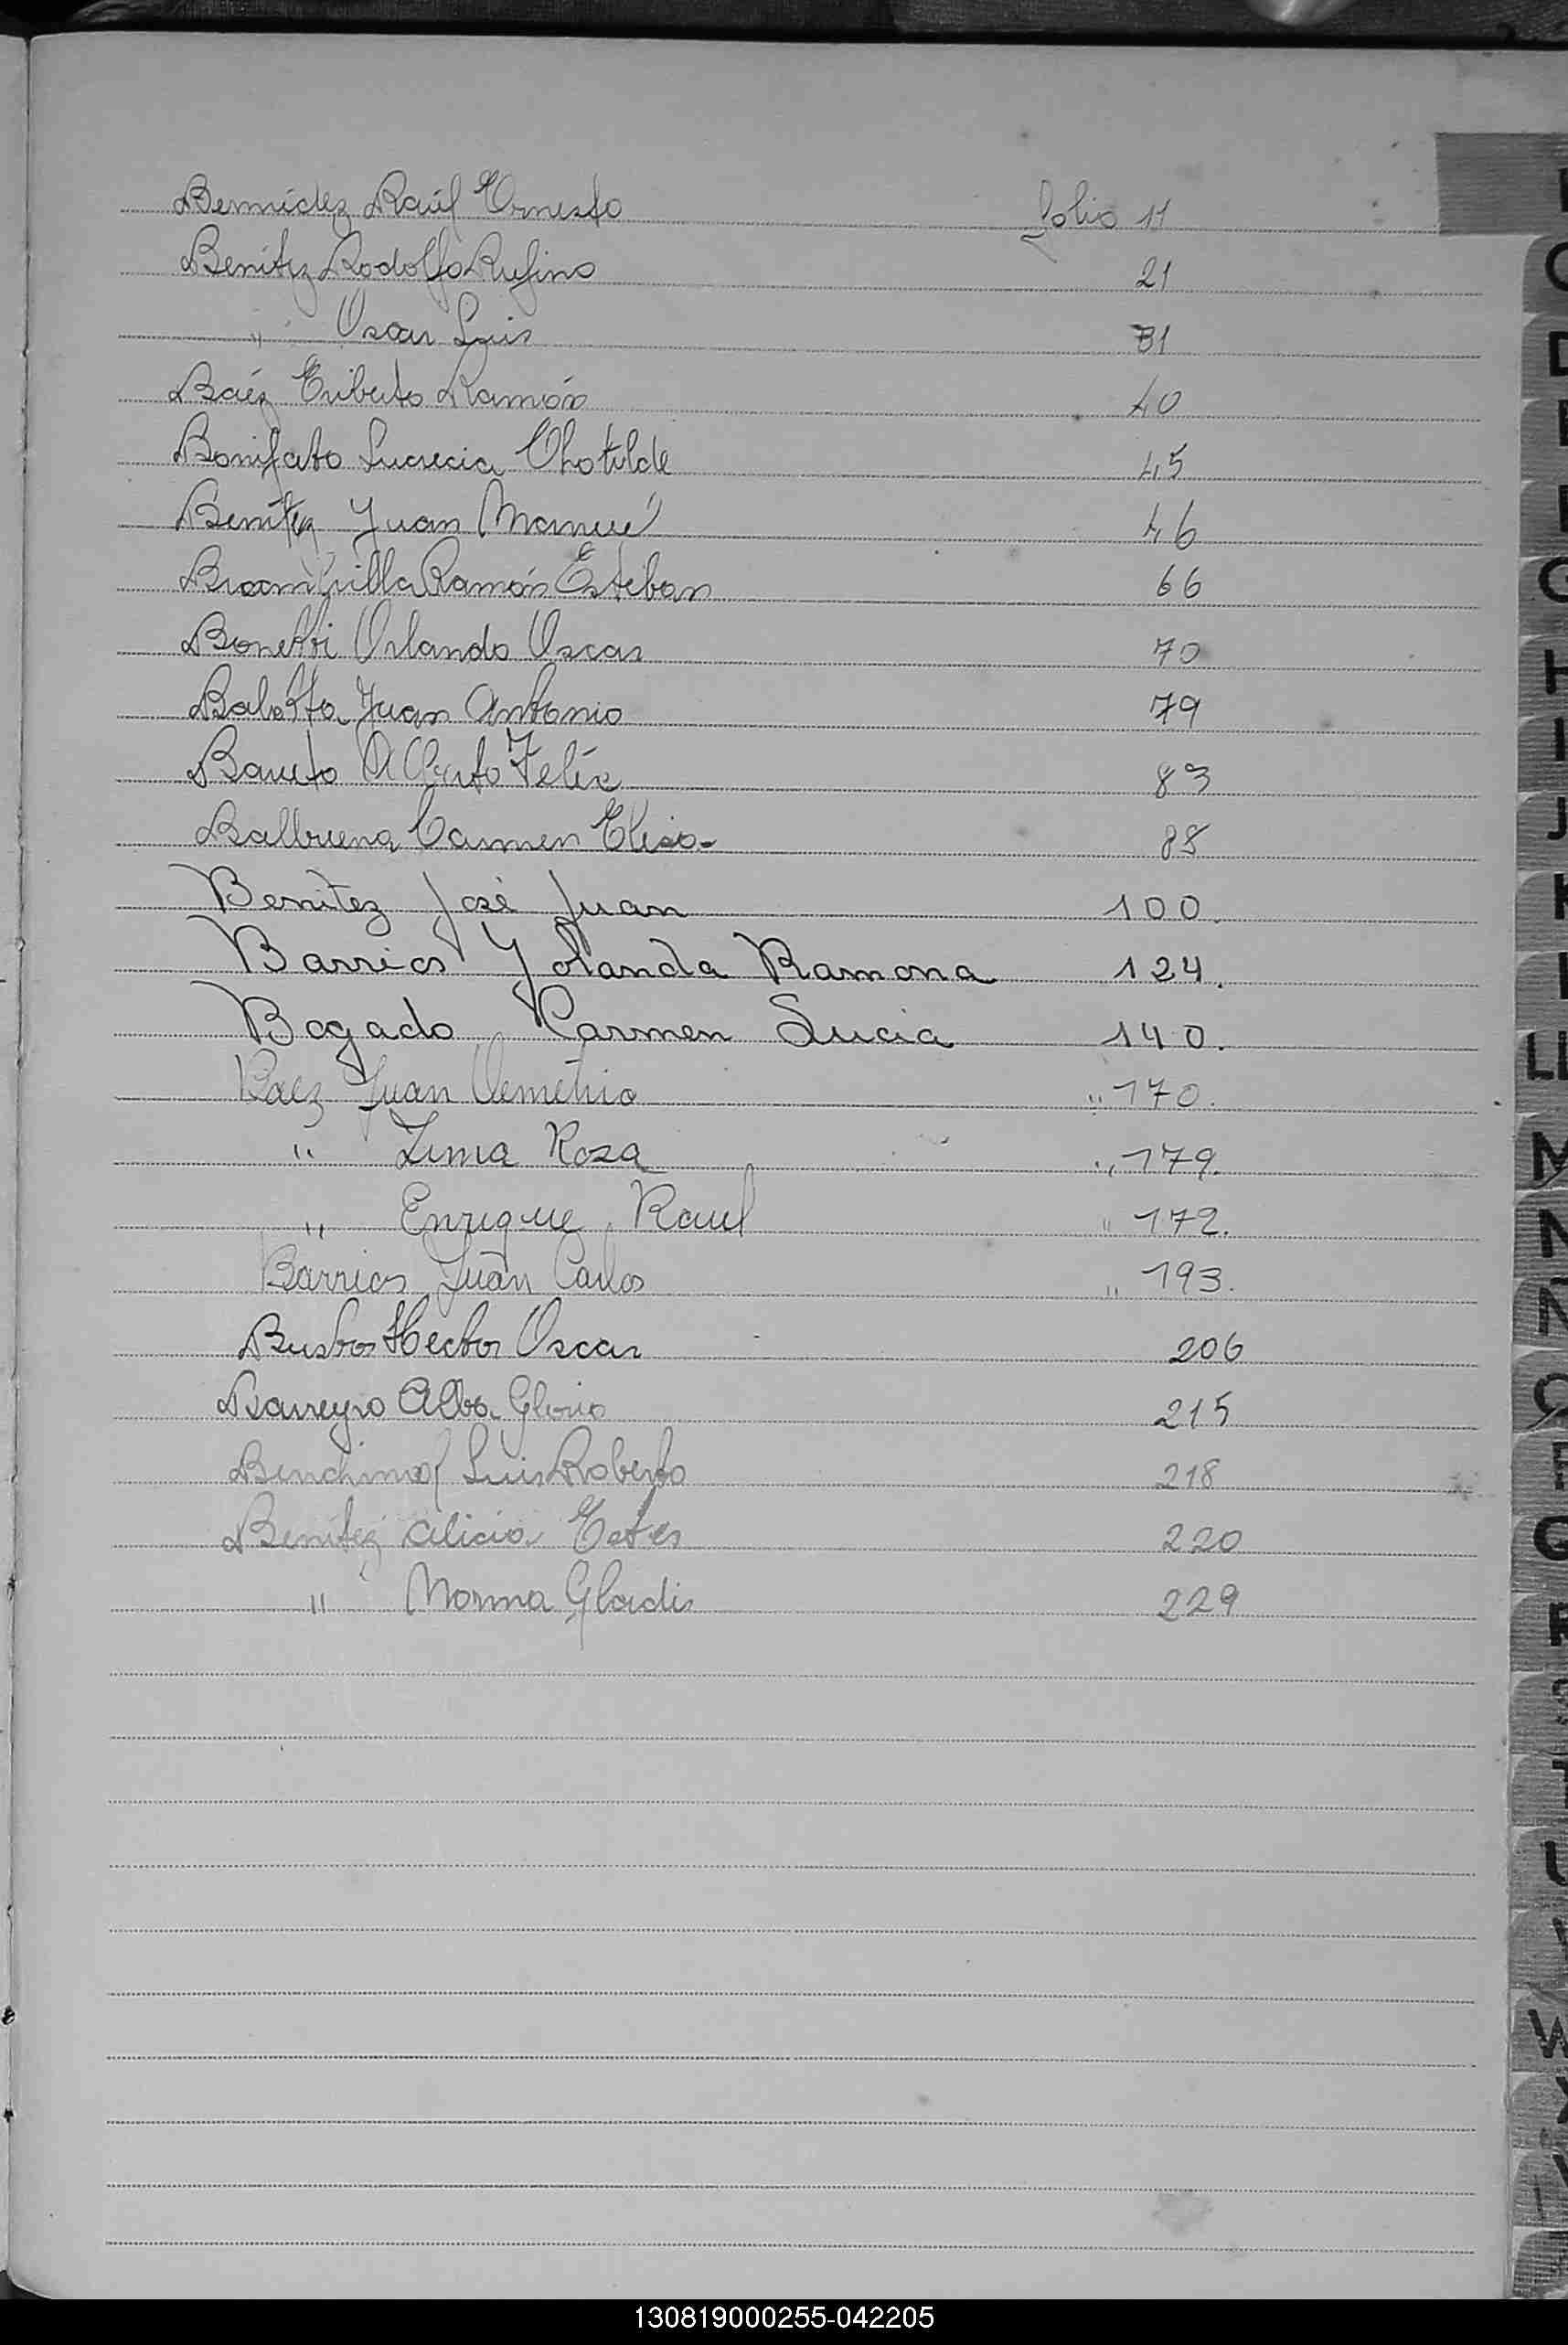 Bermúdez Raúl Ernesto folio 11
Benitez Rodolfo Rufino 21
" Oscar Luis 31
Baéz Eriberto Ramón 40
Bonifato Lucrecia Clotilde 45
Benítez Juan Manuel 46
Ramón Esteban 66
Bonetti Orlando Oscar 70
Balotta Juan Antonio 79
Barreto Alberto Feliz 83
Balbuena Carmen Elisa- 88
Benitez José Juan 100.
Barrios Yolanda Ramona 124.
Bogado Carmen Lucia 140.
Baez Juan Demetrio " 170.
" Zunia Rosa " 179.
" Enrique Raul " 172.
Barrios Juan Carlos " 193.
Bustos Hector Oscar 206
Barreyro Alba Gloria 215
Benchimol Luis Roberto 218
Benitez Alicia Ester 220
" Norma Gladis 229
C
D
H
I
J
K
LL
M
N
Ñ
W
130819000255-042205